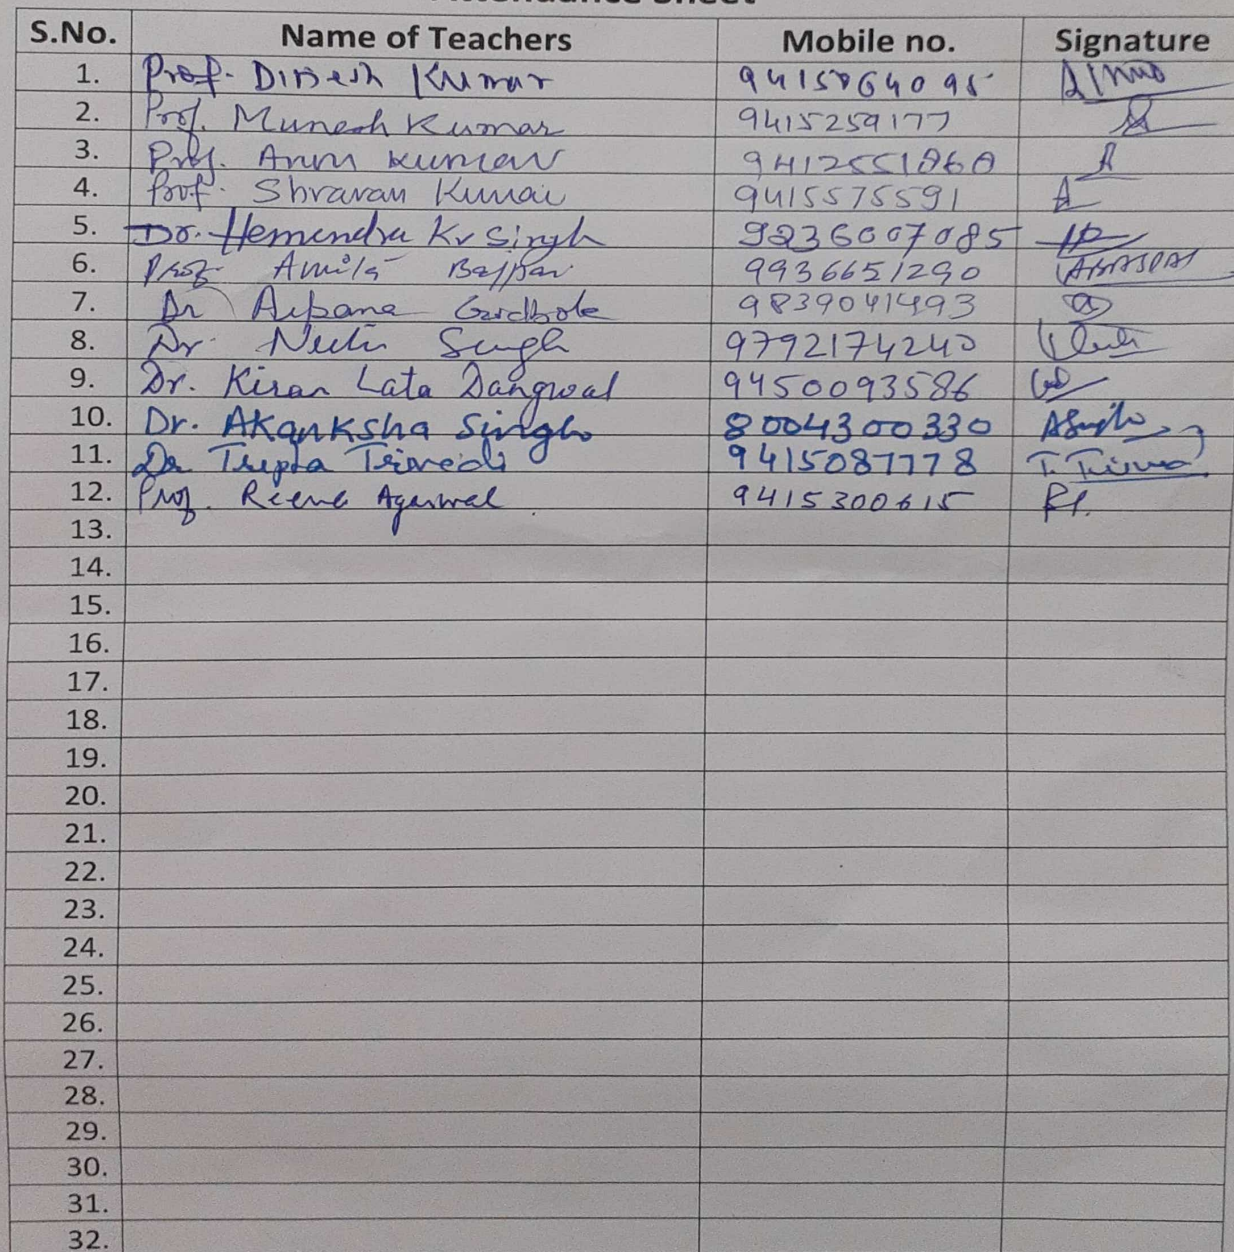 S.No. Name of Teachers Mobile no. Signature
1. Prof. Dinesh Kumar 9415064095
2. Prof. Munesh Kumar 9415259177
3. Prof. Arun Kumar 9412551060
4. Prof. Shravan Kumar 9415575591
5. Dr. Hemendra Kr Singh 9236007085
6. Prof Amita Bajpai 9936651290
7. Dr Arpana Godbole 9839041493
8. Dr. Neetu Singh 9792174240
9. Dr. Kiran Lata Dangwal 9450093586
10. Dr. Akanksha Singh 8004300330 ASingh
11. Dr Tripta Trivedi 9415087778 T. Trivedi
12. Prof. Reena Agarwal 9415300615
13.
14.
15.
16.
17.
18.
19.
20.
21.
22.
23.
24.
25.
26.
27.
28.
29.
30.
31.
32.